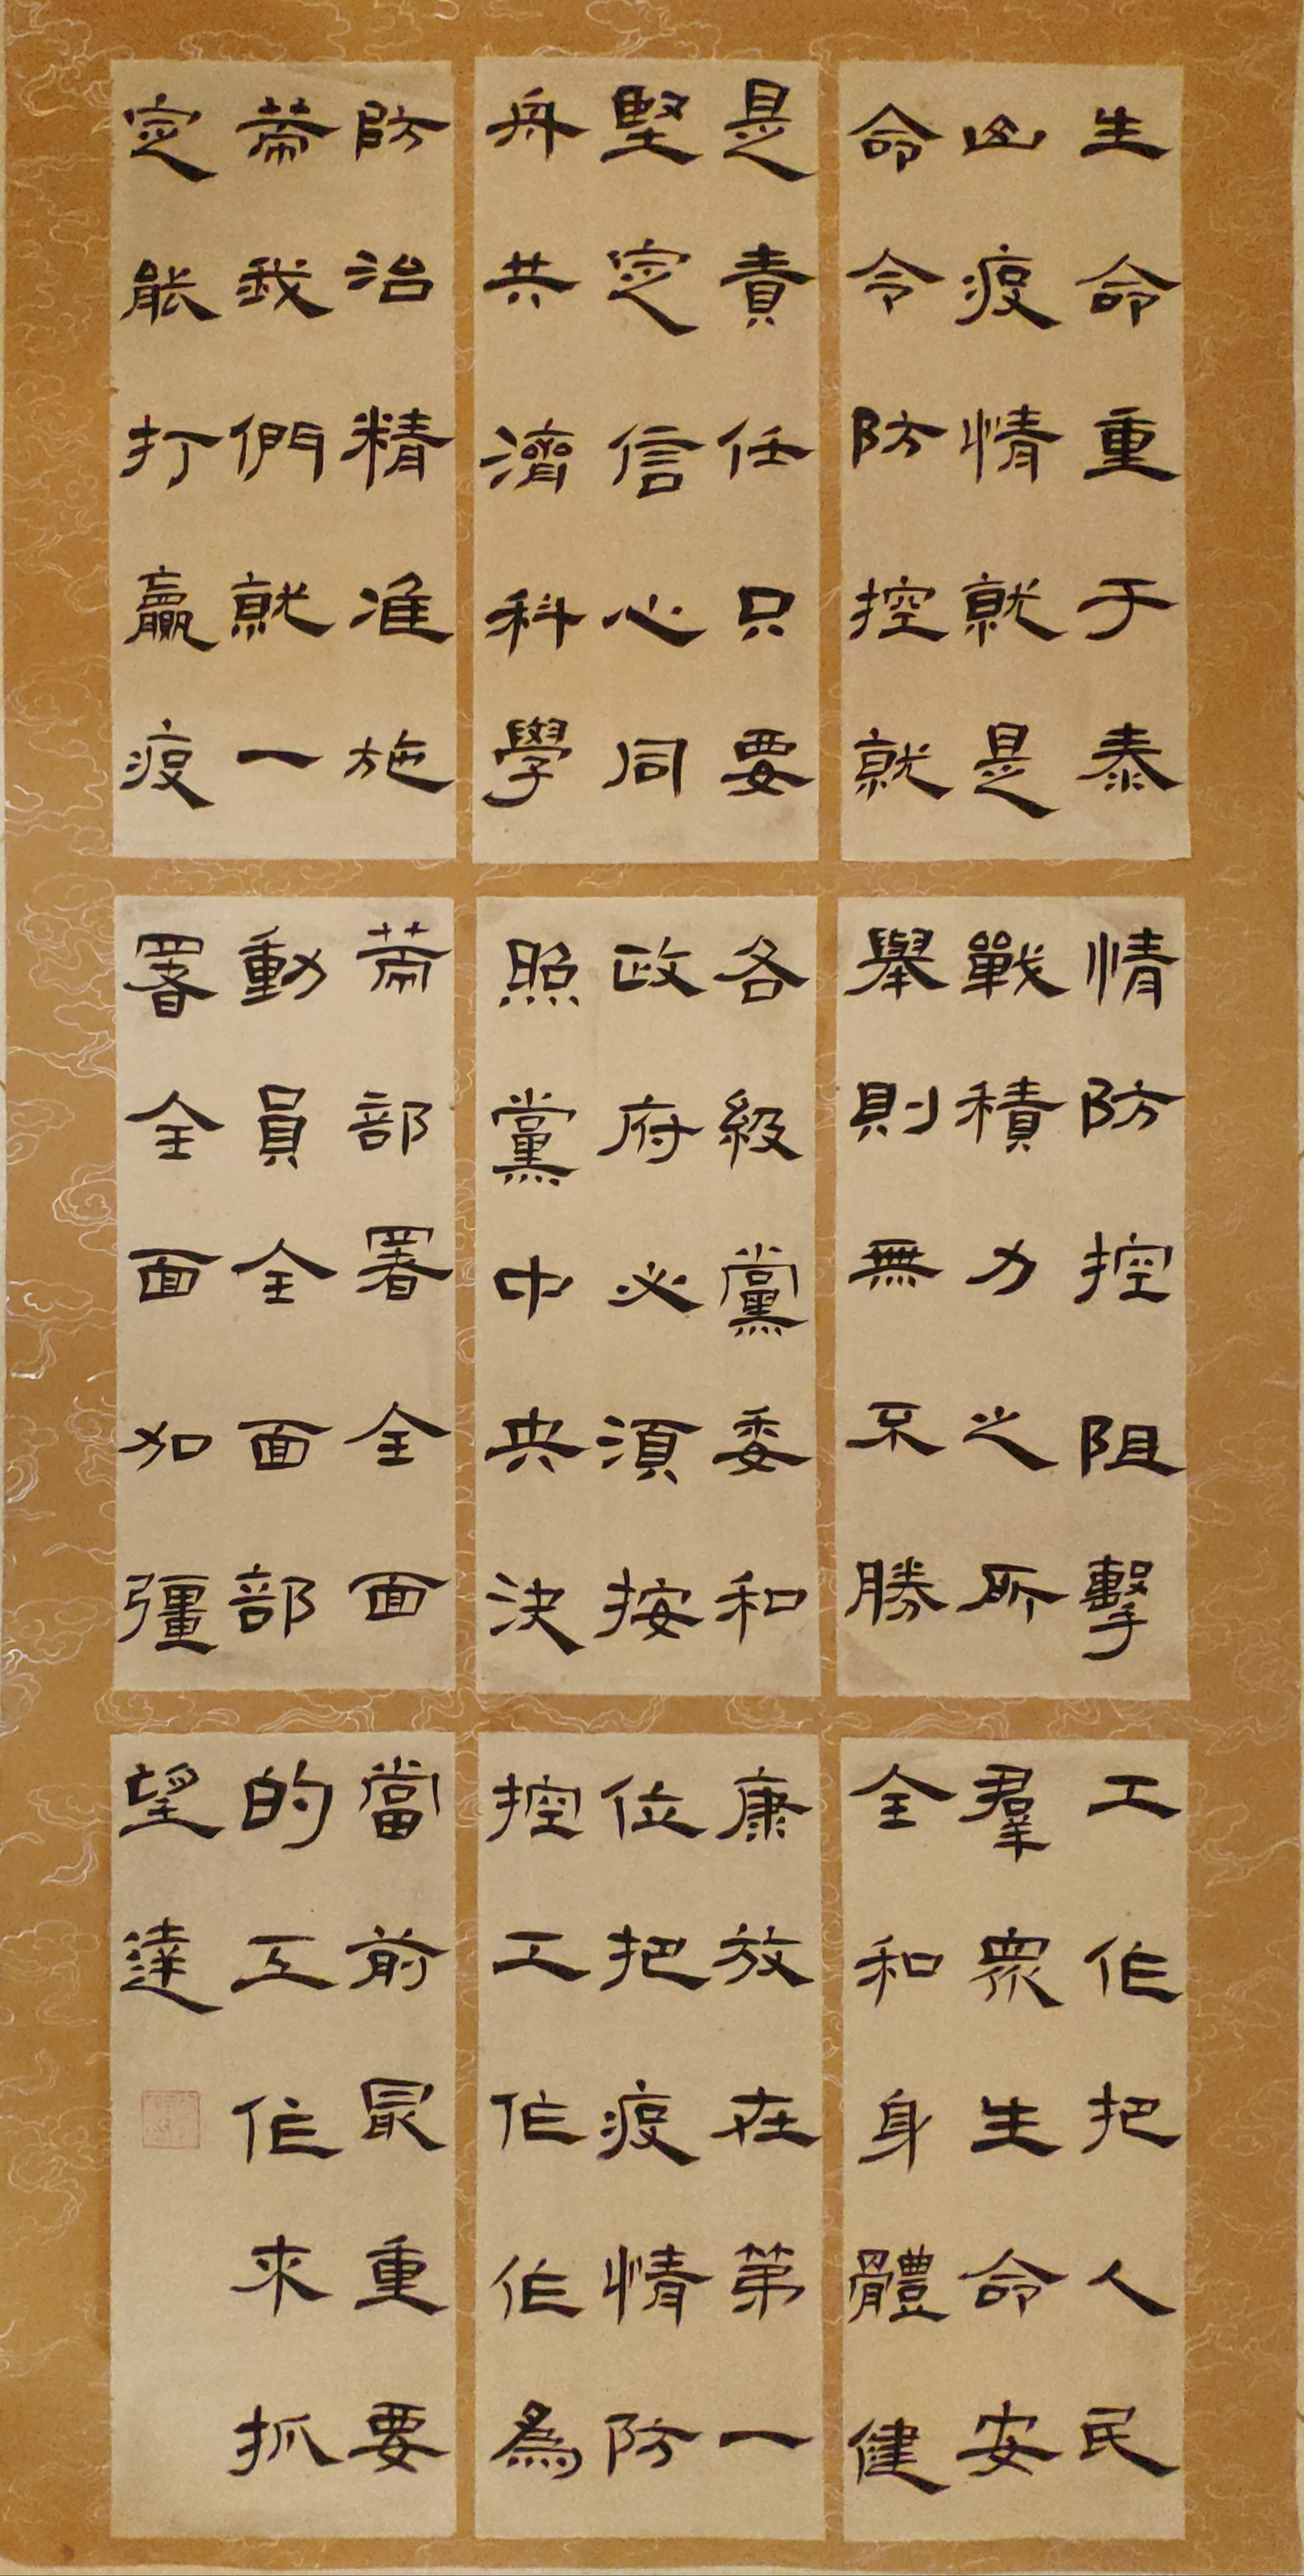 生命重于泰
山疫情就是
命令防控就
是責任只要
堅定信心同
舟共濟科學
防治精准施
策我們就一
定能打贏疫
情防控阻擊
戰積力之所
舉則無不勝
各級黨委和
政府必須按
照黨中央決
策部署全面
動員全面部
署全面加彊
工作把人民
羣眾生命安
全和身體健
康放在第一
位把疫情防
控工作作為
當前最重要
的工作來抓
望達